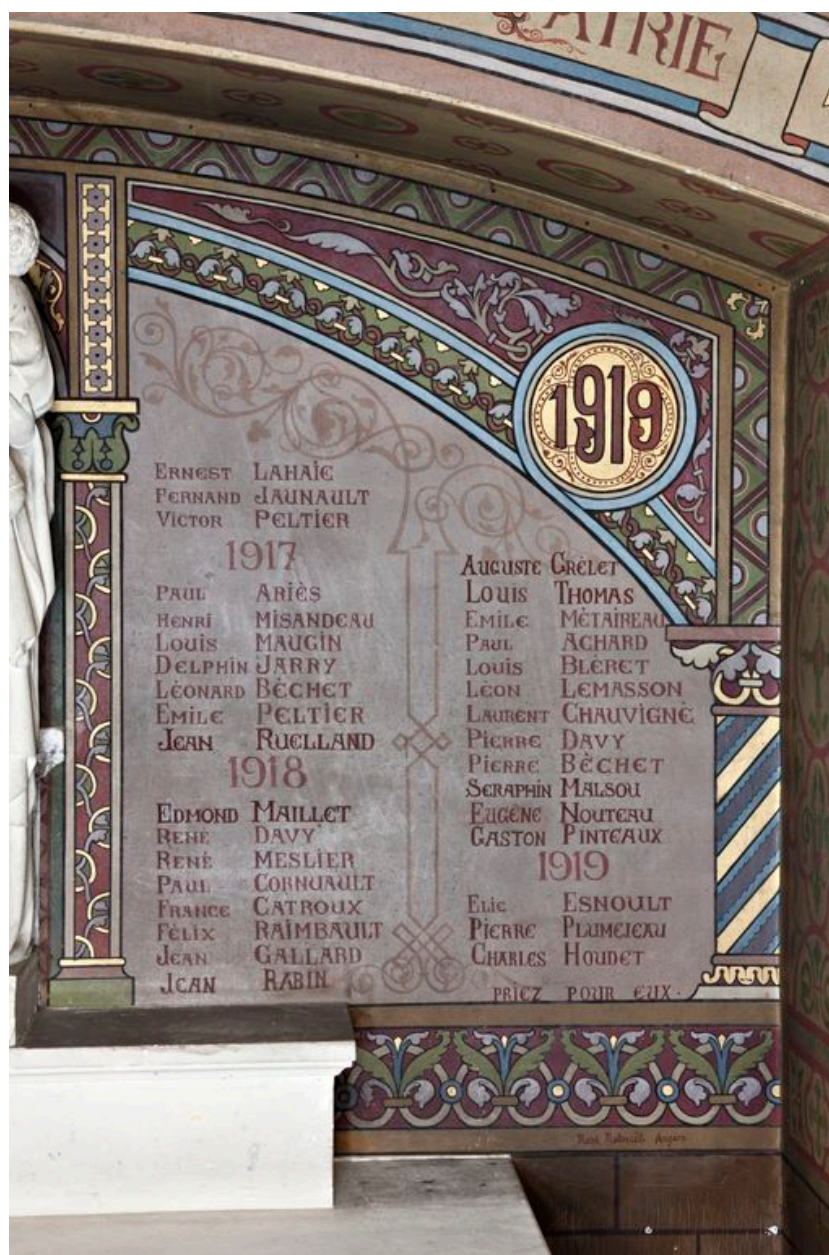 PATRIE
1919
ERNEST LAHAÏE
FERNAND JAUNAULT
VICTOR PELTIER
1917
PAUL ARIÈS
HENRI MISANDEAU
LOUIS MAUGIN
DELPHIN JARRY
LÉONARD BÉCHET
EMILE PELTIER
JEAN RUELLAND
1918
EDMOND MAILLET
RENÉ DAVY
RENÉ MESLIER
PAUL CORNUAULT
FRANCE CATROUX
FÉLIX RAIMBAULT
JEAN GALLARD
JEAN RABIN
AUGUSTE GRÉLET
LOUIS THOMAS
EMILE MÉTAIREAU
PAUL ACHARD
LOUIS BLÉRET
LÉON LEMASSON
LAURENT CHAUVIGNÉ
PIERRE DAVY
PIERRE BÉCHET
SERAPHIN MALSOU
EUGÈNE NOUTEAU
GASTON PINTEAUX
1919
ELIE ESNOULT
PIERRE PLUMEJEAU
CHARLES HOUDET
PRIEZ POUR EUX.
Angers